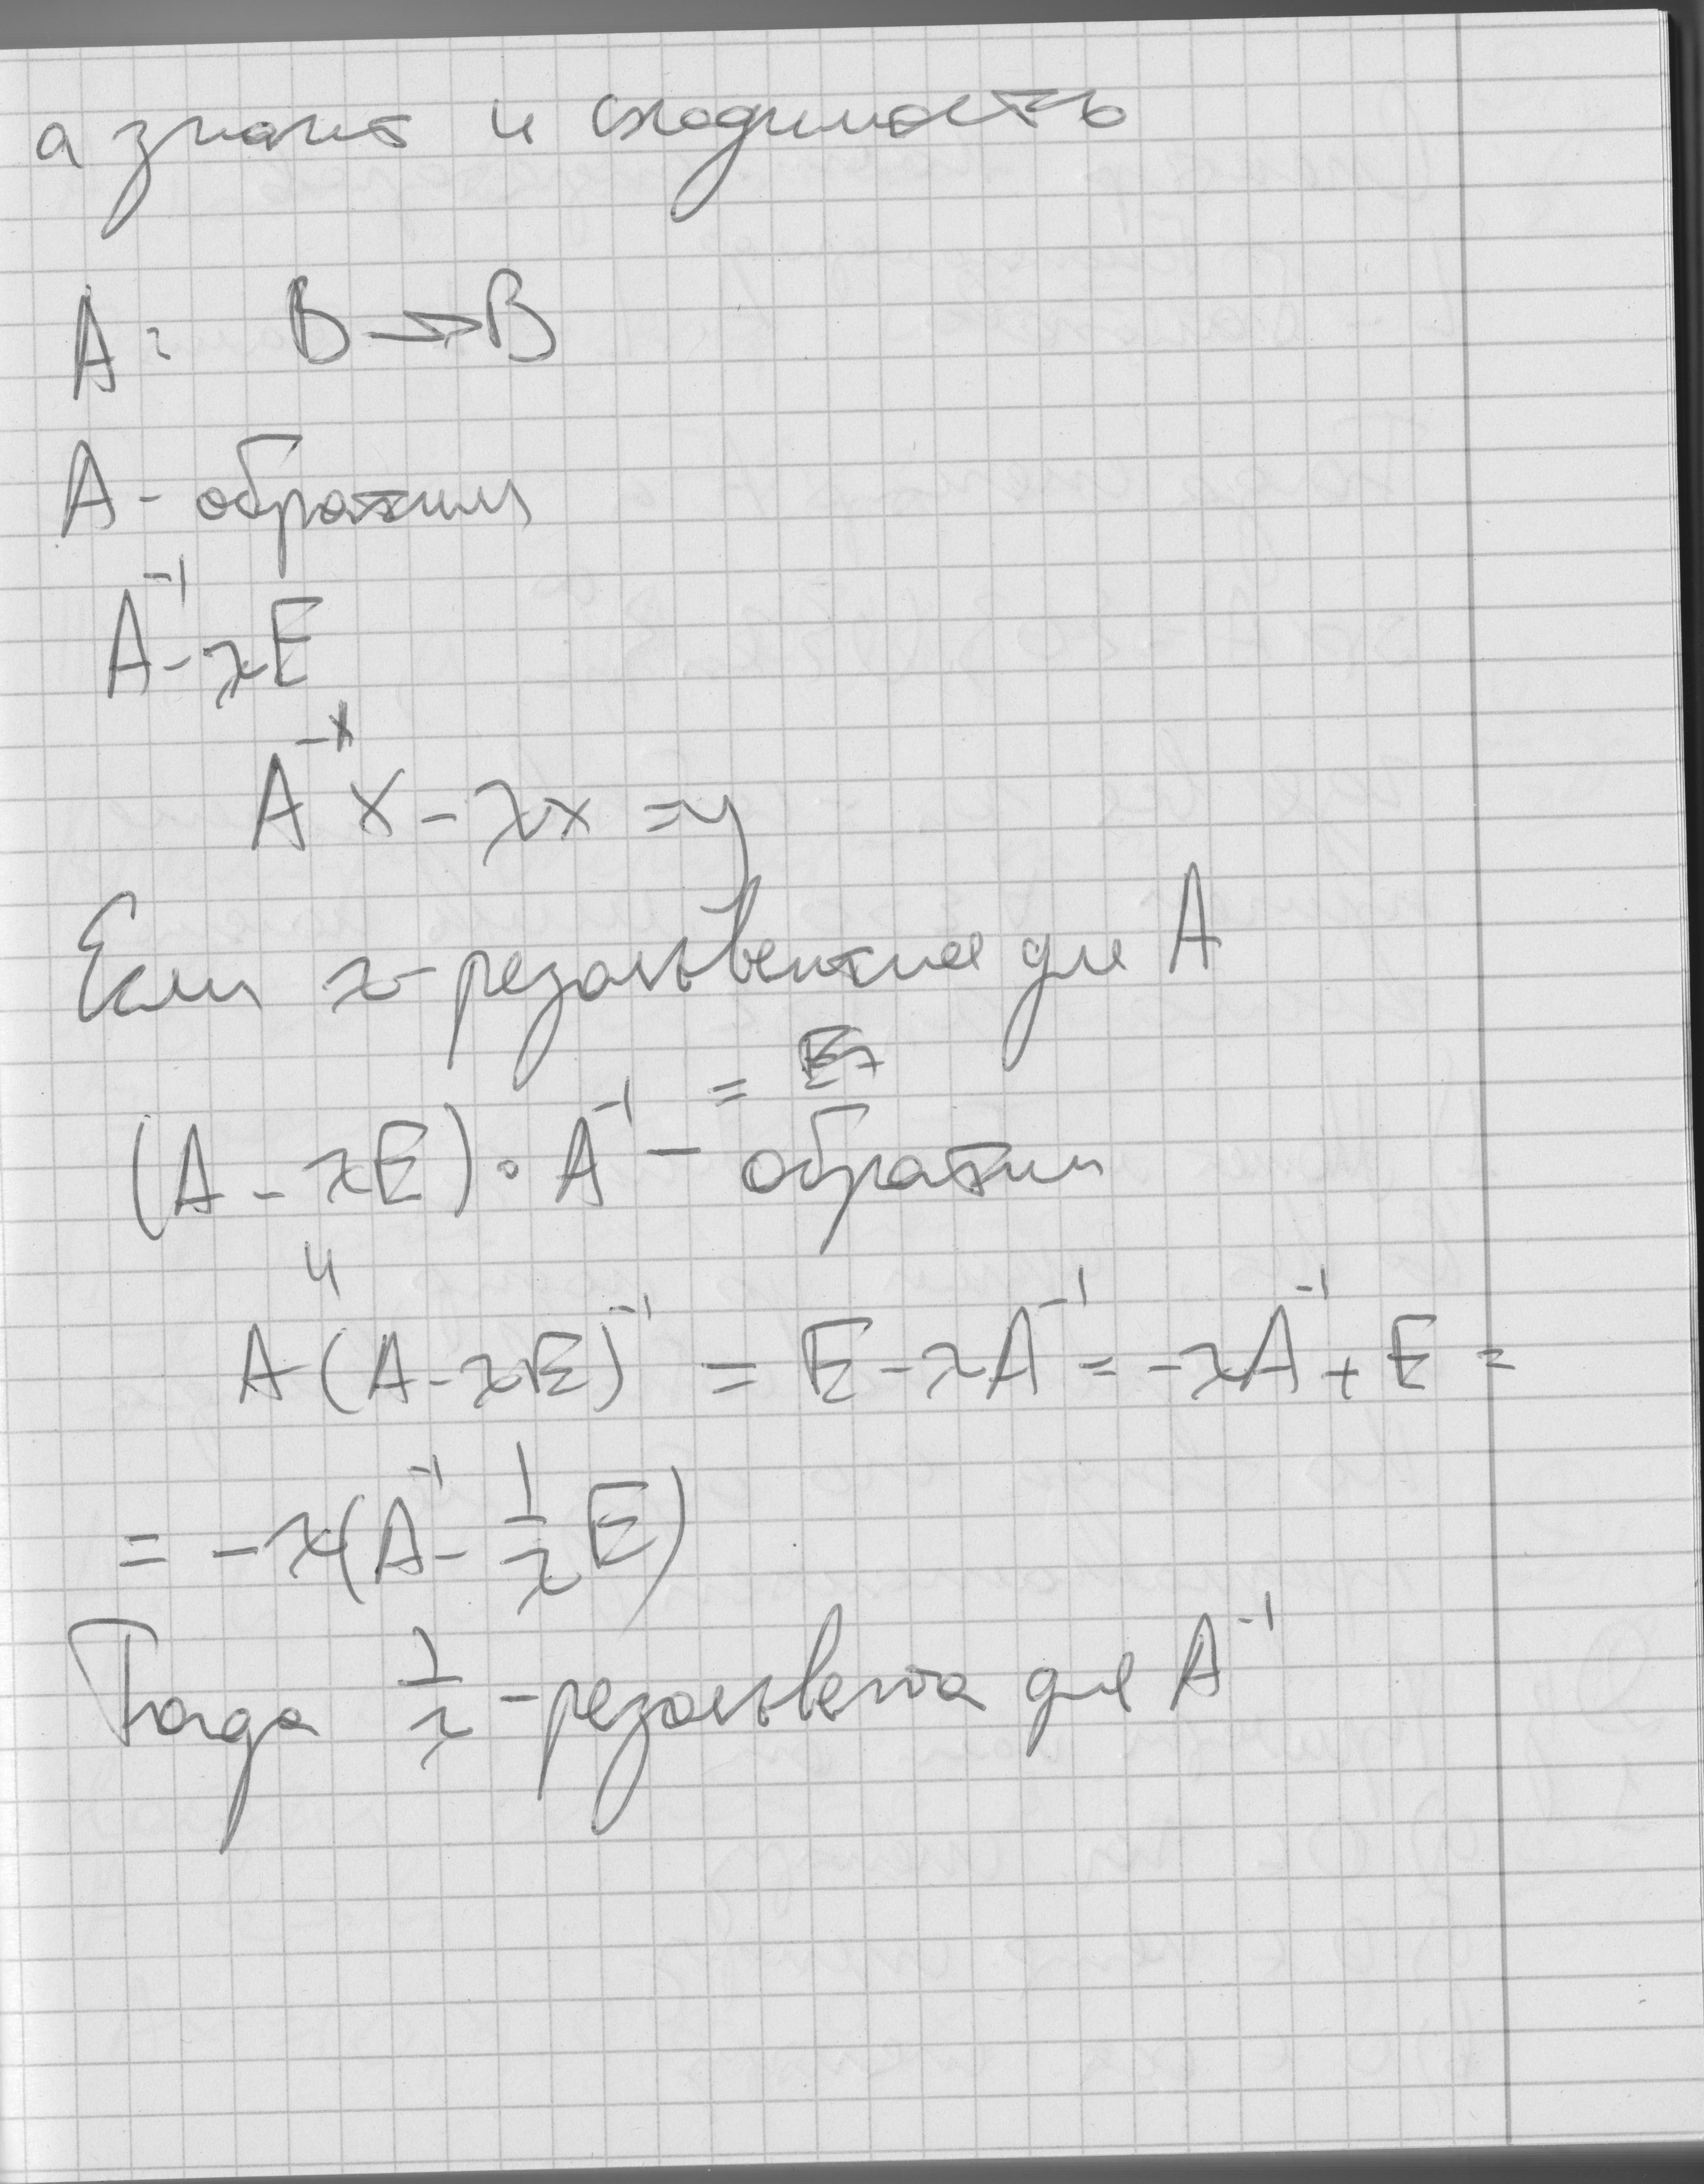 а значит и сходимость
A: B → B
A - обратим
A⁻¹ - λE
A⁻¹x - λx = y
Если λ - резольвентное для A
(A - λE) · A⁻¹ - обратим
и
A(A - λE)⁻¹ = E - λA⁻¹ = -λA⁻¹ + E =
= -λ(A⁻¹ - 1/λ E)
Тогда 1/λ - резольвента для A⁻¹